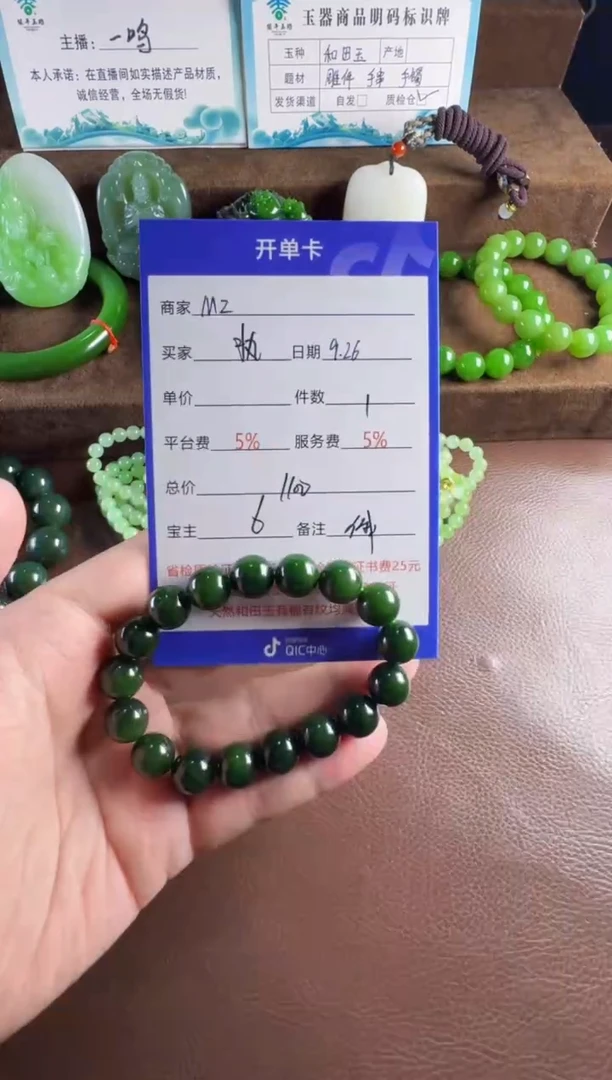 主播: 一鸣
本人承诺: 在直播间如实描述产品材质,
诚信经营, 全场无假货!
玉器商品明码标识牌
玉种 和田玉 产地
题材 雕件 手串 手镯
发货渠道 自发□ 质检仓☑
开单卡
商家 MZ
买家 日期 9.26
单价 件数 1
平台费 5% 服务费 5%
总价 1100
宝主 6 备注
证书费25元
天然和田玉
QIC中心